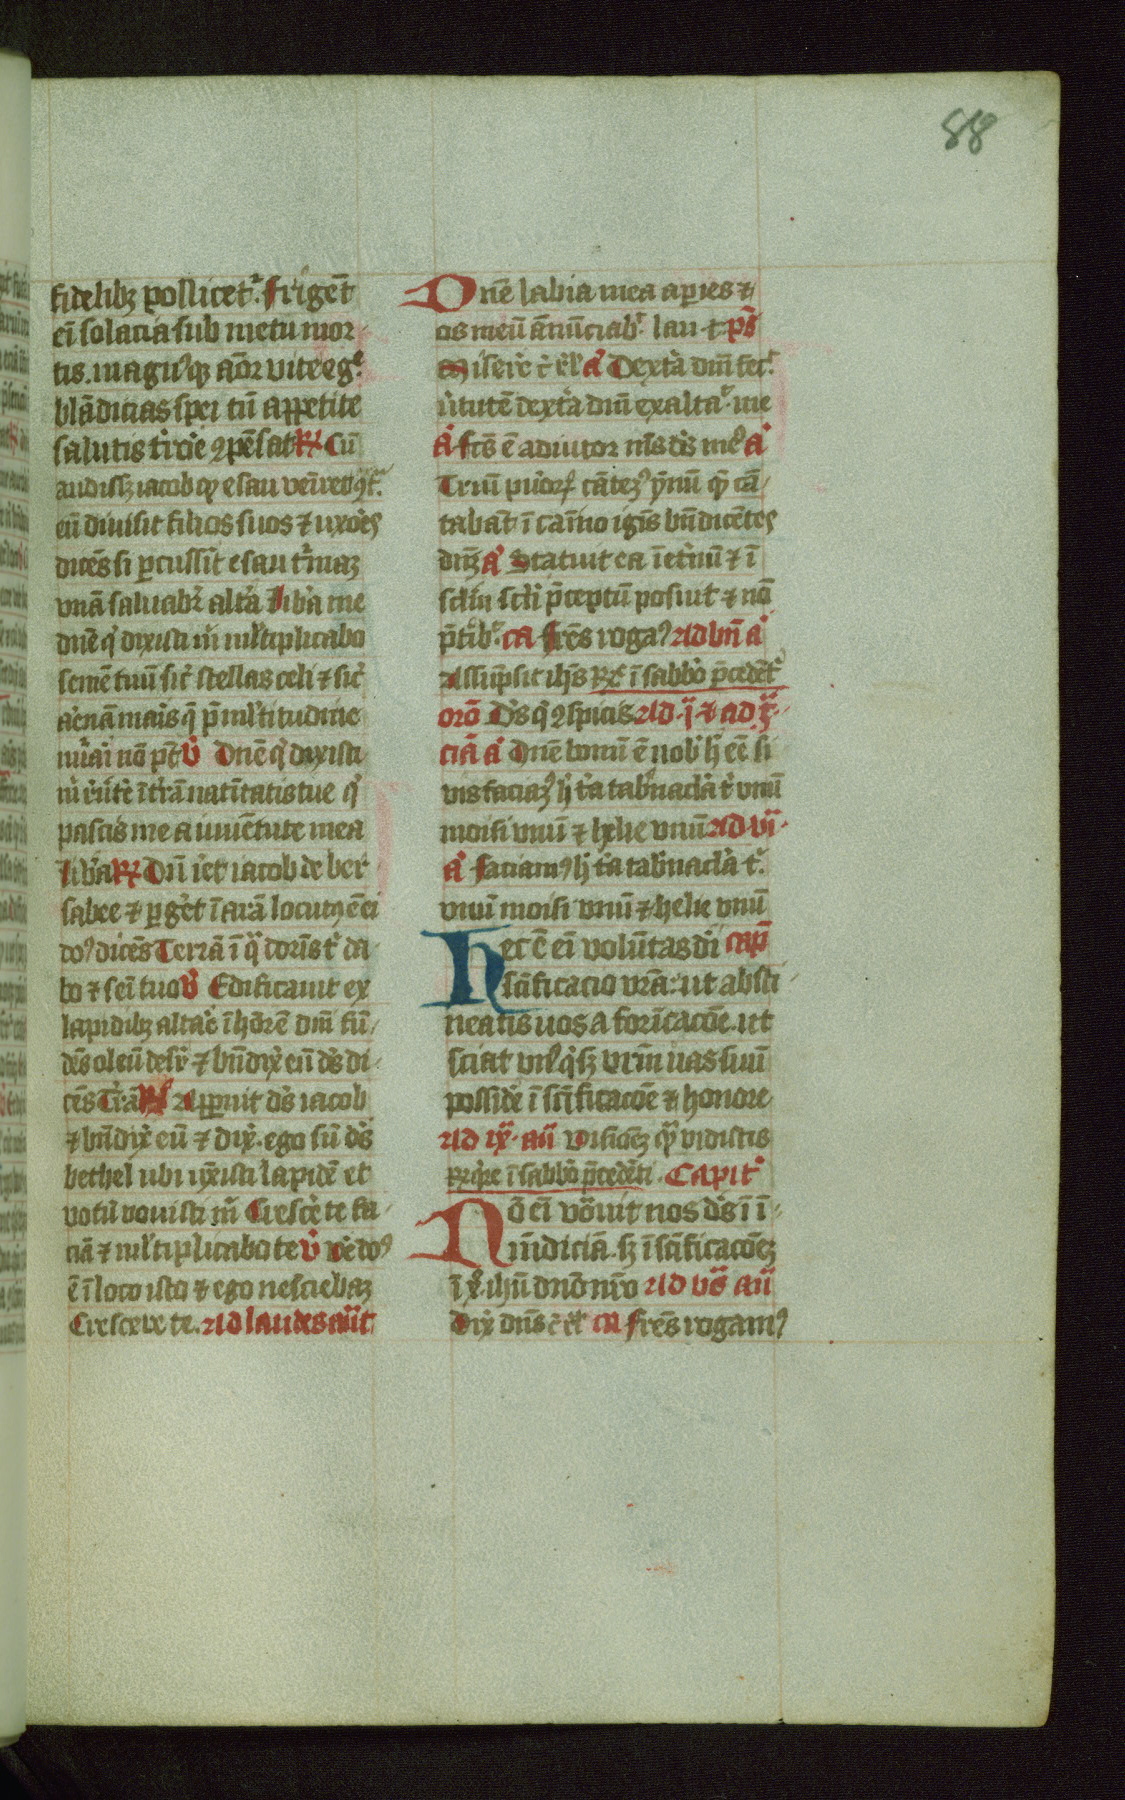 88
fidelibꝫ pollicet᷑. frigēt
eī solacia sub metu mor
tis. magisqꝫ aīor vite eg
blādicias spei cū appetite
salutis t̄rcie ꝯpēsat R̷ Cū
audissꝫ iacob qꝫ esau
eū diuisit filios suos ⁊ uxōes
dicēs si ꝑcussit̄ esau t̄maꝫ
vnā saluabr̄ altā liba me
dn̄e q̇ dixisti m̄ ml̄tiplicabo
semē tuū sic̄ stellas celi ⁊ sic̄
aenā maīs q̄ p̄ ml̄titudine
nūai nō pt̄ v̄ Dn̄e q̇ dixisti
m̄ īt̄rā natītatis tue q̇
pascis me a iuuētute mea
liba R̷ Dū iet iacob de ber
sabee ⁊ ꝑget ī arā locutꝰ ē ei
doꝰ dicēs Terrā ī q̄ dorīs t̄ da
bo ⁊ seī tuo v̄ Edificauit ex
lapidibꝫ altāe ī hōrē dn̄i fū
dēs oleū desꝑ ⁊ bn̄dix̄ eū dꝰs di
cēs Tr̄ā R̷ Apparuit dꝰs iacob
⁊ bn̄dix̄ eū ⁊ dix̄. ego sū dꝰs
bethel ubi ūxisti lapidē et
votū vouisti m̄ Cresce te fa
ciā ⁊ ml̄tiplicabo te v̄ Ve doꝰ
ē ī loco isto ⁊ ego nesciebaꝫ
Crescere te. Ad laudes aūt
Dn̄e labia mea aꝑies ⁊
os meū ānūciab᷑ lau t. ps̄
Miserē ē ꝉ a᷑ Dextā dn̄i fec᷑
ūtutē dext̄a dn̄i exalta᷑ me
a᷑ fc̄s ē adiutor mīs dꝰs meꝰ a᷑
Triū puīorꝫ cātezꝰ ẏnū q̄ cā
tabāt ī camīo igīs bn̄dicētes
dn̄ꝫ a᷑ Statuit ea ī et̄nū ⁊ ī
sclm̄ scl̄i p̄ceptū posuit ⁊ nō
p̄tibꝰ ca frēs roga᷑ Ad bn̄ a᷑
Assūpsit ih̄s Rꝭ ī sabbō p̄cedēt᷑
orō Dꝰs q̇ ꝯspicis Ad ī ⁊ ad t̄
ciā a᷑ Dn̄e bonū ē nob̄ h̄ eē si
vis faciaꝫꝰ h̄ t̄a tabn̄aclā t̄ vnū
moisi vnū ⁊ helie vnū Ad vi
a᷑ faciamꝰ h̄ t̄a tabn̄aclā t᷑
vnū moisi vnū ⁊ helie vnū
Hec ē eī volūtas di Cap̄
sc̄ificacio vr̄a: ut absti
neatis uos a fornīcacōe. ut
sciat vnꝰq̇sꝫ vr̄m uas suū
possidē ī sc̄ificacōe ⁊ honore
Ad ix̄. aū Visionēꝫ q̄ vidistis
Rq̇re ī sabbō p̄cedēti. Capit᷑
Nō eī vōuit nos dꝰs ī ī
mūdiciā. sꝫ ī sc̄ificacōeꝫ
ī xꝰ ihū dn̄o nr̄o Ad vs̄ aū
Dix̄ dn̄s ē ꝉ ca frēs rogamꝰ